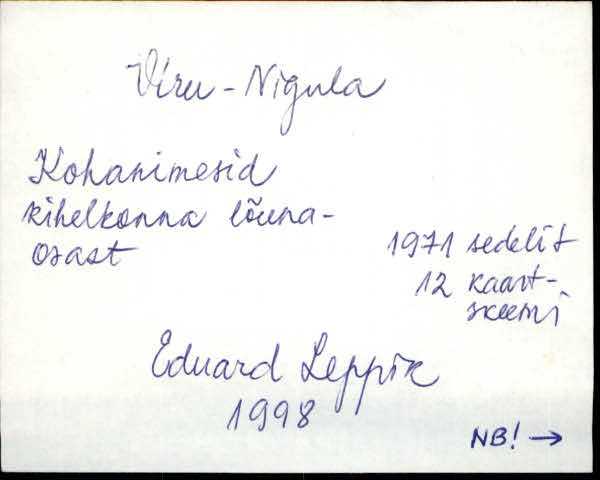 Viru-Nigula
Kohanimesid
kihelkonna lõuna-
osast
1971 sedelit
12 kaart-
skeemi
Eduard Leppik
1998
NB! →